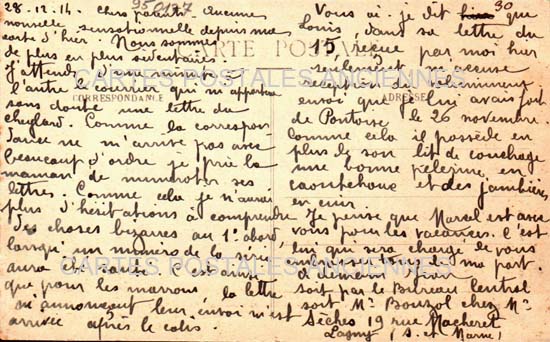 28-12-14. Chers parents. Aucune
950197
nouvelle sensationnelle depuis ma
carte d'hier. Nous sommes
de plus en plus sédentaires.
J'attends
l'autre le courrier qui m'apportera
sans doute une lettre du
Cheylard. Comme la correspon-
dance ne m'arrive pas avec
beaucoup d'ordre je prie la
maman de numéroter ses
lettres. Comme cela je n'aurai
plus d'hésitations à comprendre
des choses bizarres au 1er abord,
lorsqu'un numéro de la
aura été sauté. C'est ainsi
que pour les marrons, la lettre
m'annonçant leur envoi m'est
arrivée après le colis.
CARTE POSTALE
CORRESPONDANCE
ADRESSE
CARTES POSTALES ANCIENNES
CARTES POSTALES ANCIENNES
30
Vous ai-je dit que
Louis, dans sa lettre du
15, reçue par moi hier
seulement, m'accuse
réception du
envoi que je lui avais fait
de Pontoise le 26 novembre.
Comme cela il possède en
plus le son lit de couchage
une bonne pèlerine en
caoutchouc et des jambières
en cuir.
Je pense que Marcel est avec
vous pour les vacances. C'est
lui qui sera chargé de vous
de ma part.
soit par le Bureau Central
soit Mr Bouzol chez Mr
Sèches 19 rue Macheret
Lagny (S. et Marne)